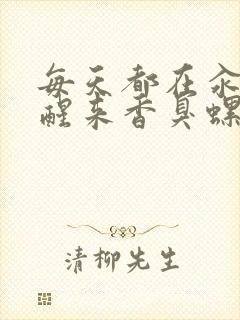 每天都在汆
醒来香臭螺
清柳先生